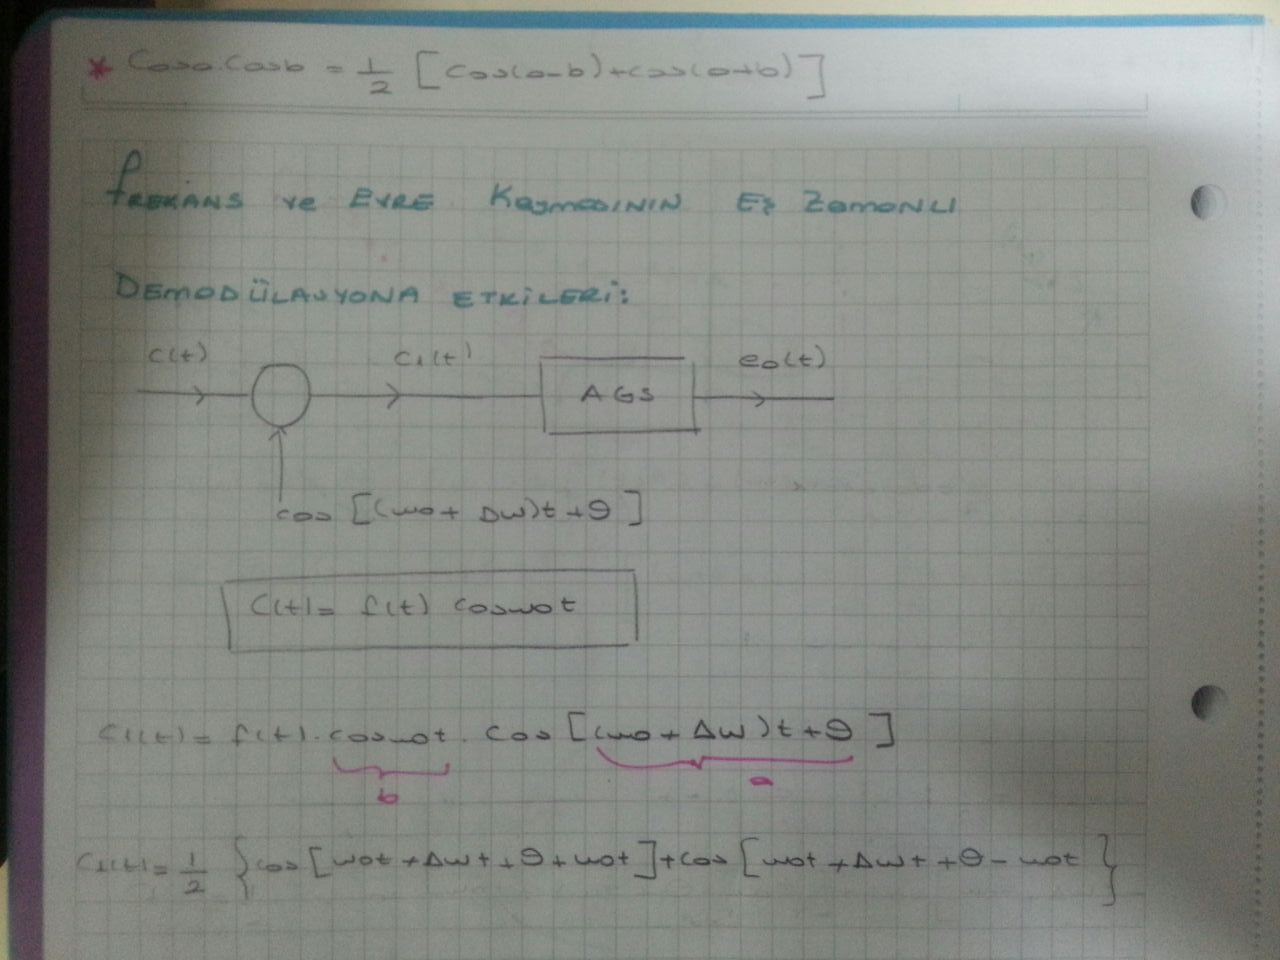 * Cosa.Cosb = 1/2 [cos(a-b)+cos(a+b)]
Frekans ve Evre Kaymasının Eş Zamanlı
Demodülasyona etkileri:
C(t) C₁(t) e₀(t)
AGS
cos [(ω₀+ Δω)t+θ]
C(t)= f(t) cosω₀t
C₁(t)= f(t).cosω₀t. cos [(ω₀+Δω)t+θ]
b a
C₁(t)= 1/2 {cos[ω₀t+Δωt+θ+ω₀t]+cos[ω₀t+Δωt+θ-ω₀t}